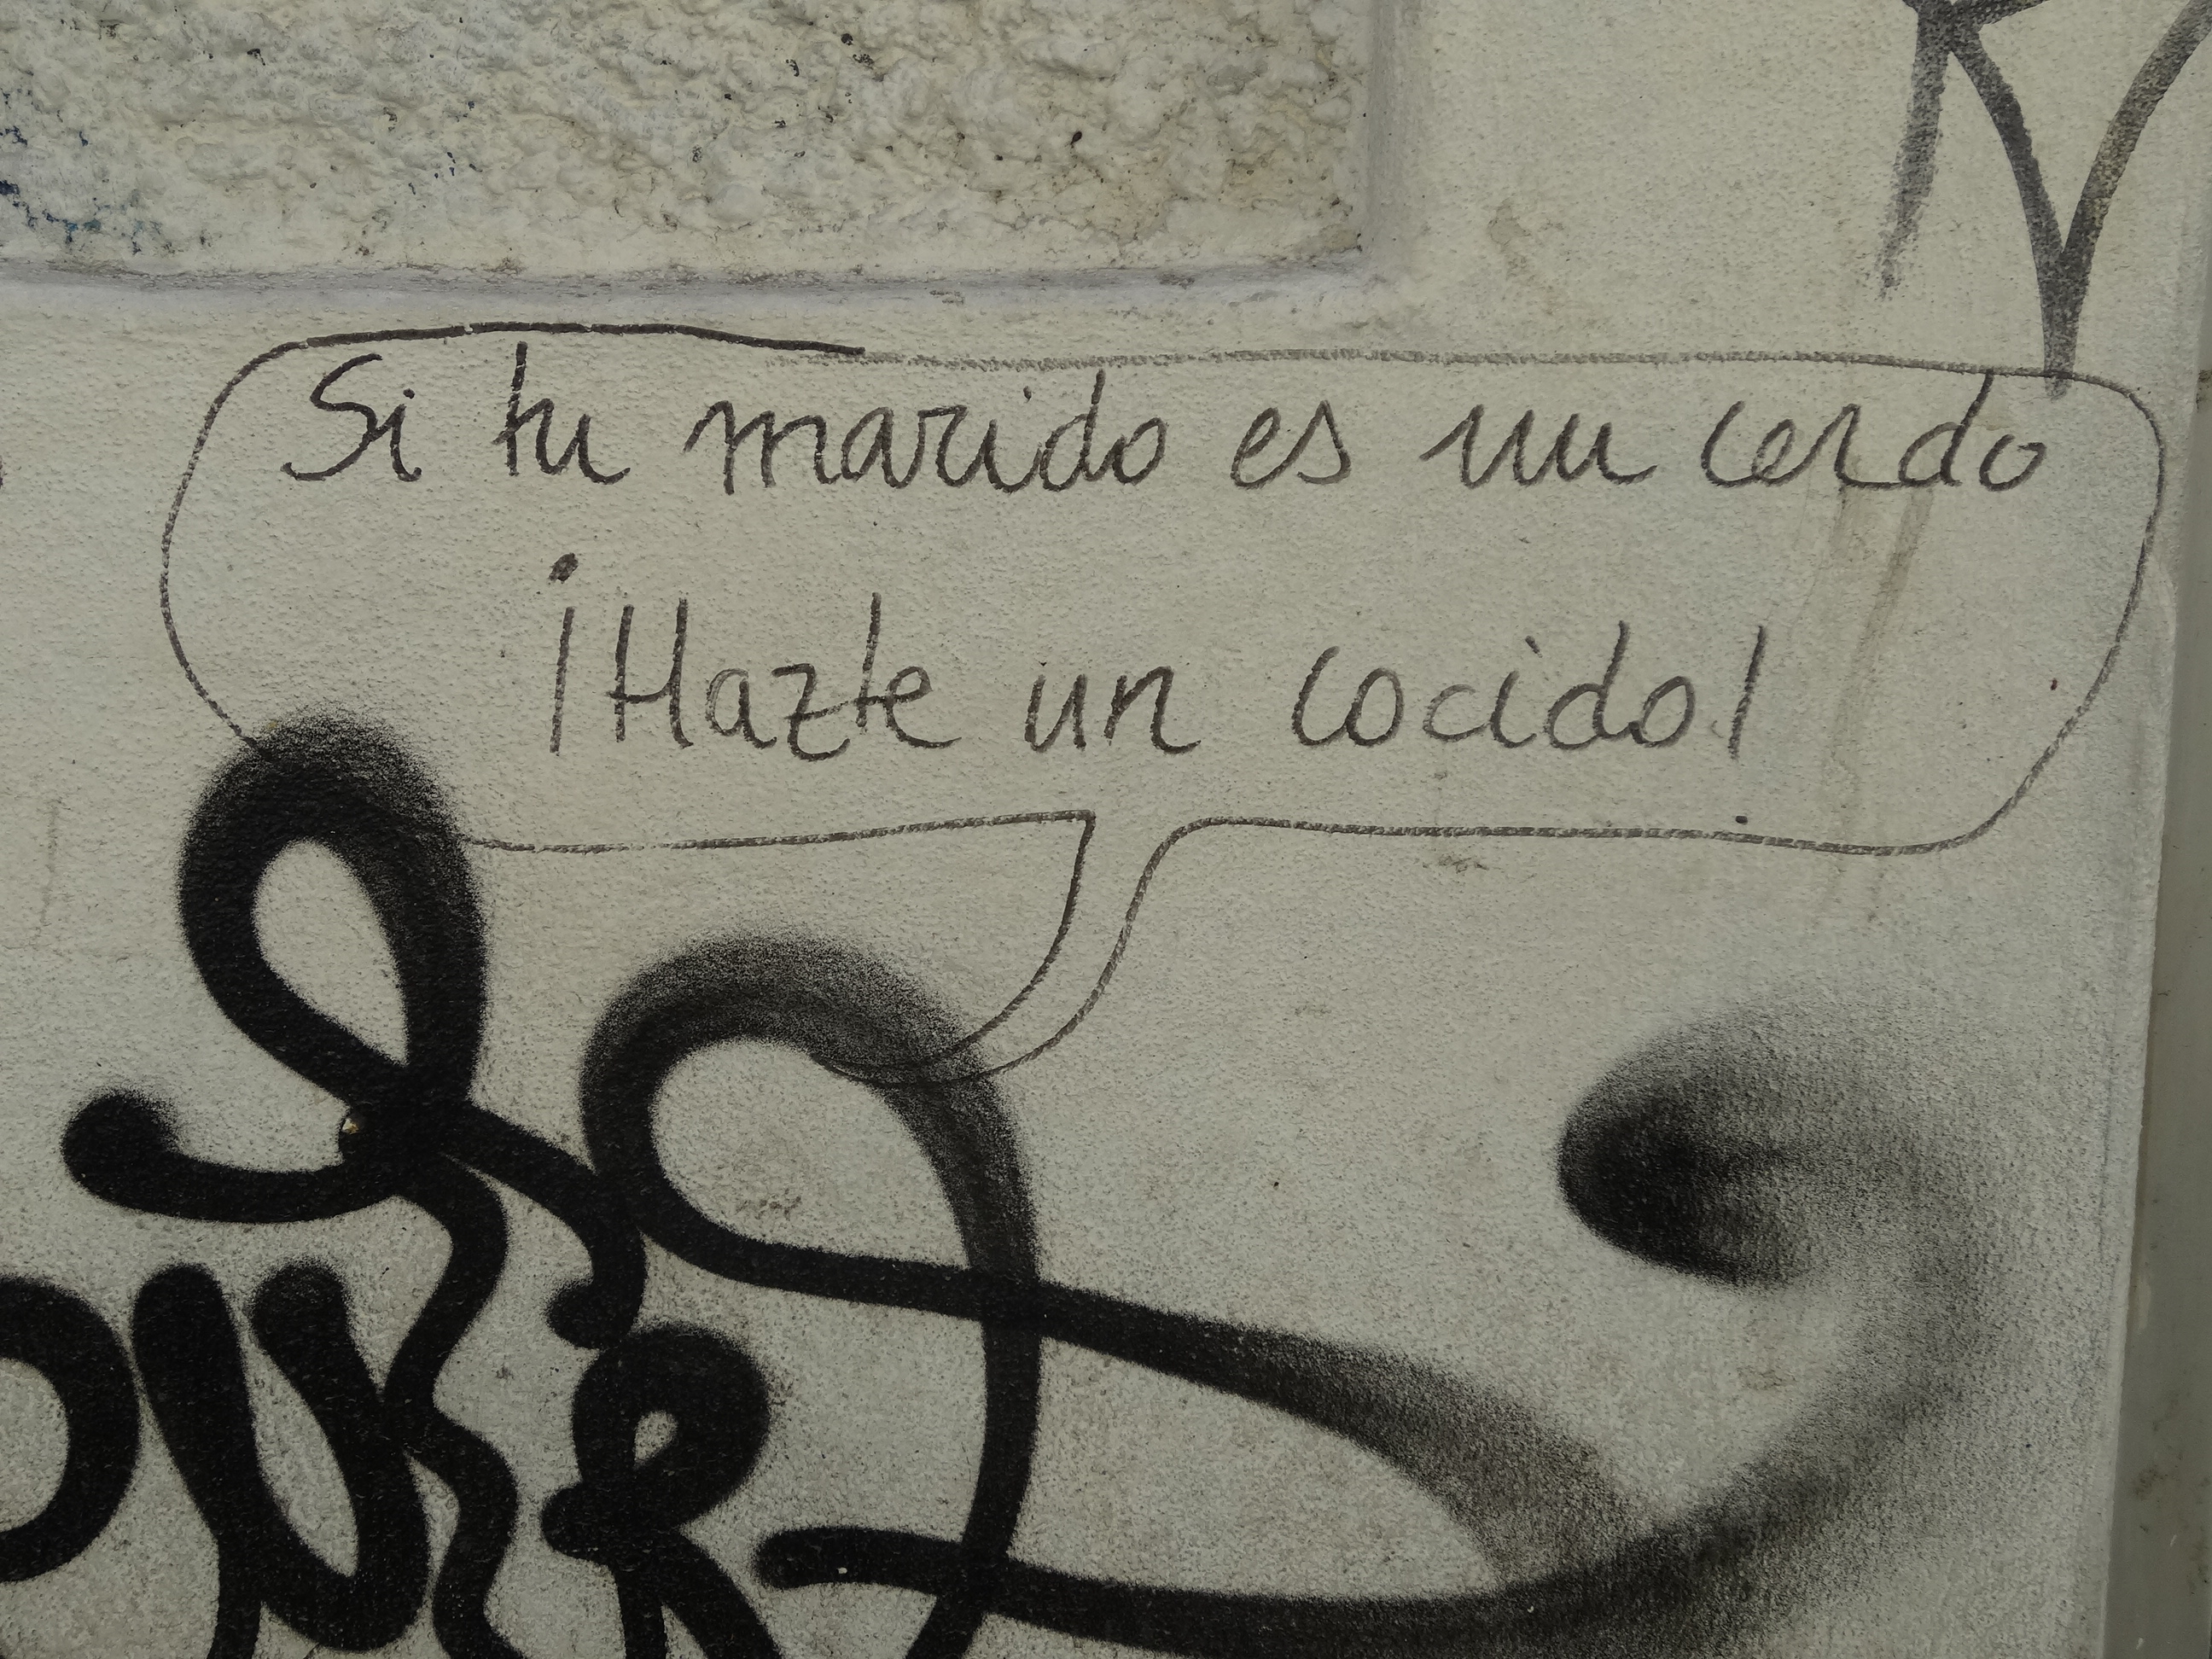 Si tu marido es un cerdo
¡Hazte un cocido!